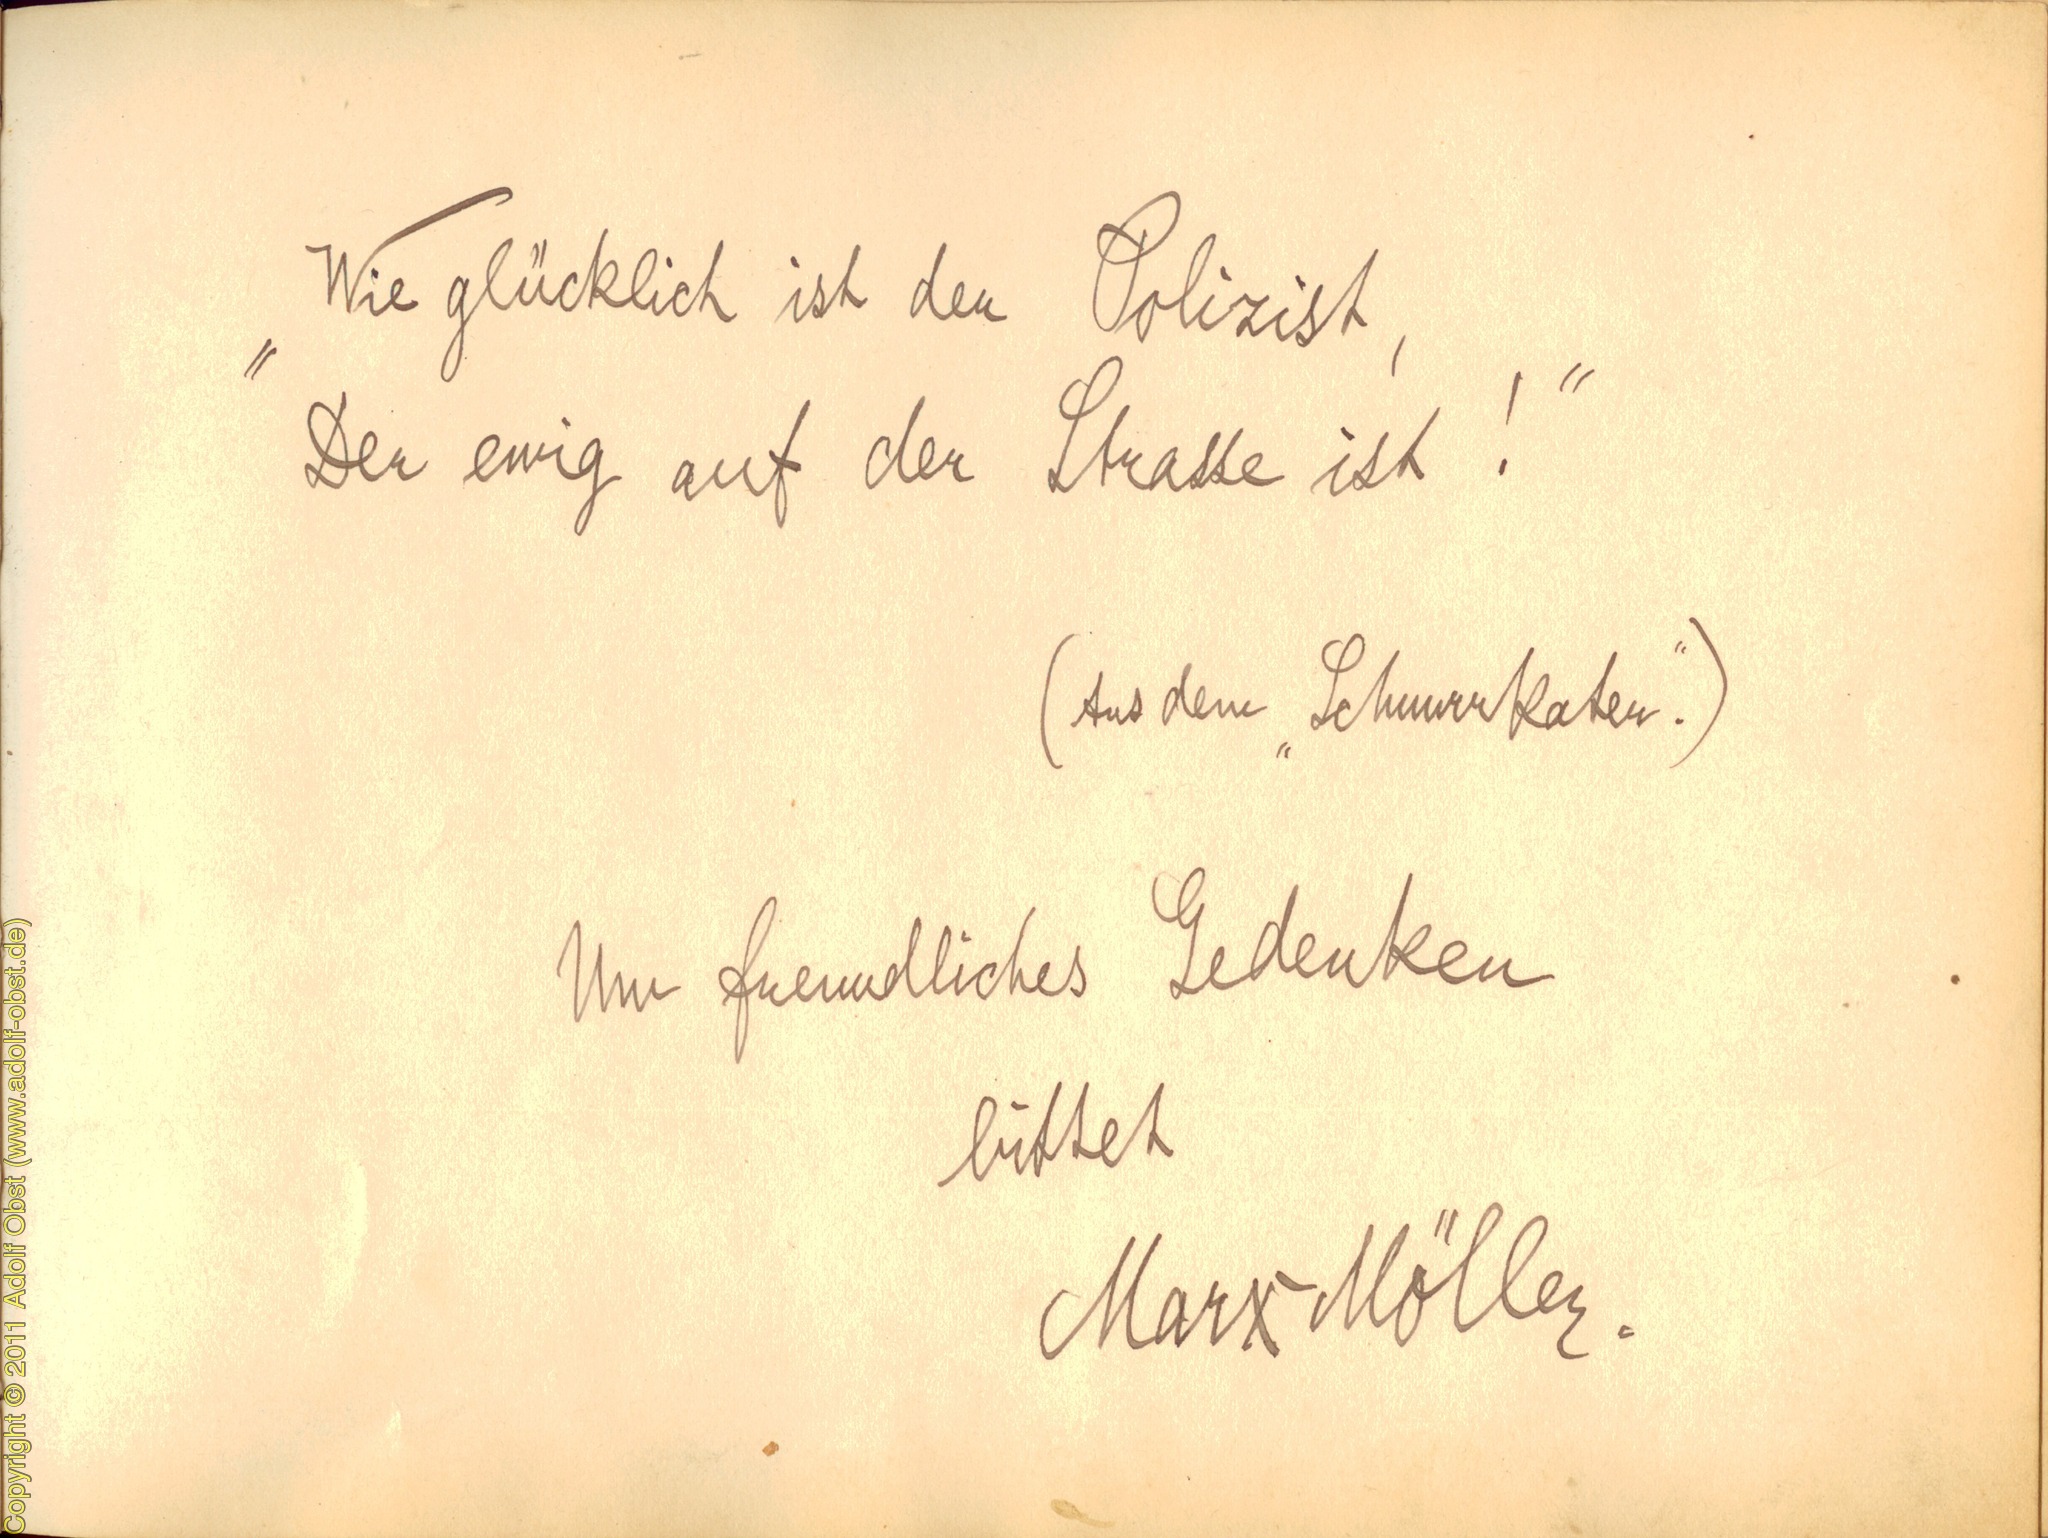 „Wie glücklich ist der Polizist,
Der ewig auf der Strasse ist!"
(Aus dem „Schnurrkater".)
Um freundliches Gedenken
bittet
Marx Möller.
Copyright © 2011 Adolf Obst (www.adolf-obst.de)